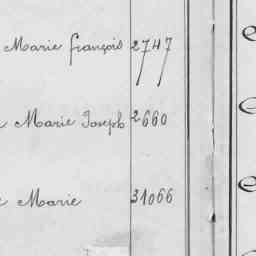 Marie françois 2747
Marie Joseph 2660
Marie 31066